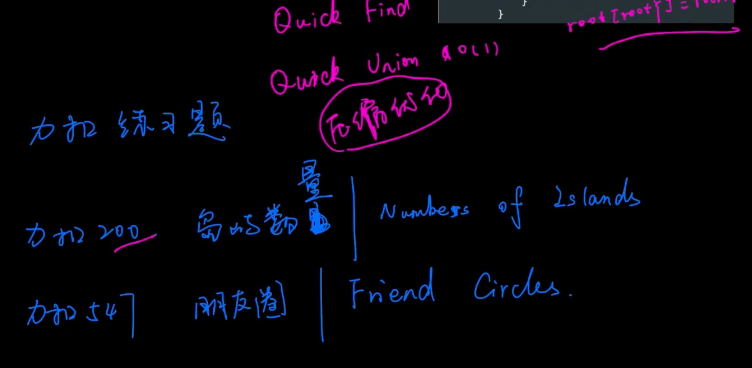 Quick Find
}
}
Quick Union O(1)
压缩优化
力扣 练习题
力扣 200 岛屿数量 | Numbers of Islands
力扣 547 朋友圈 | Friend Circles.